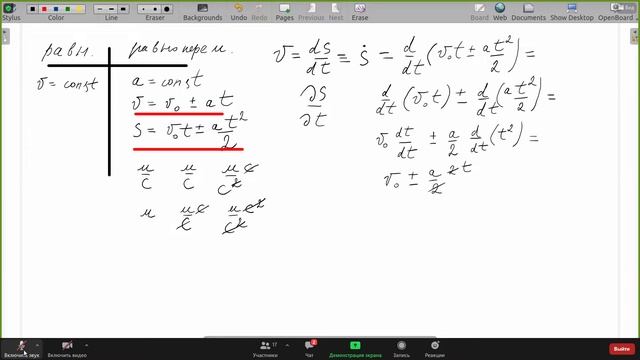 Stylus Color Line Eraser Backgrounds Undo Redo Previous Next Erase Board Web Documents Show Desktop OpenBoard
равн.
равноперем.
v = const
a = const
v = v₀ ± at
S = v₀t ± at²/2
м/с м/с м/с² с
м м/с с м/с² с²
v = dS/dt = Ṡ = d/dt (v₀t ± at²/2) =
∂S/∂t
d/dt (v₀t) ± d/dt (at²/2) =
v₀ dt/dt ± a/2 d/dt (t²) =
v₀ ± a/2 2t
Включить звук Включить видео Участники 17 Чат 2 Демонстрация экрана Запись Реакции Выйти